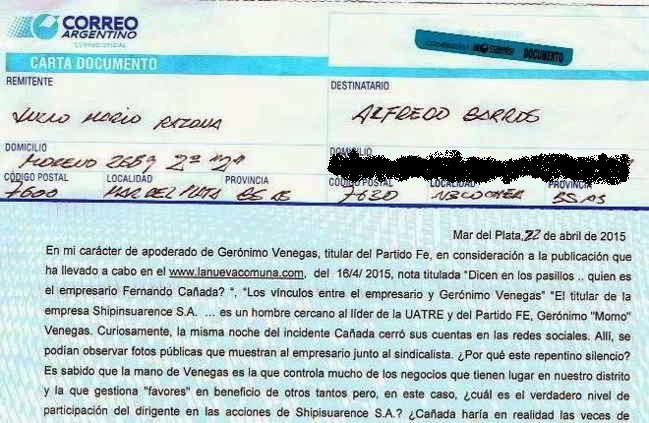 CORREO
ARGENTINO
CORREO OFICIAL
DOCUMENTO
CARTA DOCUMENTO
REMITENTE
DESTINATARIO
Mario
ALFREDO BARROS
DOMICILIO
DOMICILIO
MORENO
CÓDIGO POSTAL LOCALIDAD PROVINCIA
CÓDIGO POSTAL LOCALIDAD PROVINCIA
7600 MAR DEL PLATA BS AS
7630 NECOCHEA BS AS
Mar del Plata, 22 de abril de 2015
En mi carácter de apoderado de Gerónimo Venegas, titular del Partido Fe, en consideración a la publicación que
ha llevado a cabo en el www.lanuevacomuna.com, del 16/4/ 2015, nota titulada "Dicen en los pasillos .. quien es
el empresario Fernando Cañada? ", "Los vínculos entre el empresario y Gerónimo Venegas" "El titular de la
empresa Shipinsuarence S.A. ... es un hombre cercano al líder de la UATRE y del Partido FE, Gerónimo "Momo"
Venegas. Curiosamente, la misma noche del incidente Cañada cerró sus cuentas en las redes sociales. Allí, se
podían observar fotos públicas que muestran al empresario junto al sindicalista. ¿Por qué este repentino silencio?
Es sabido que la mano de Venegas es la que controla mucho de los negocios que tienen lugar en nuestro distrito
y la que gestiona "favores" en beneficio de otros tantos pero, en este caso, ¿cuál es el verdadero nivel de
participación del dirigente en las acciones de Shipisuarence S.A.? ¿Cañada haría en realidad las veces de